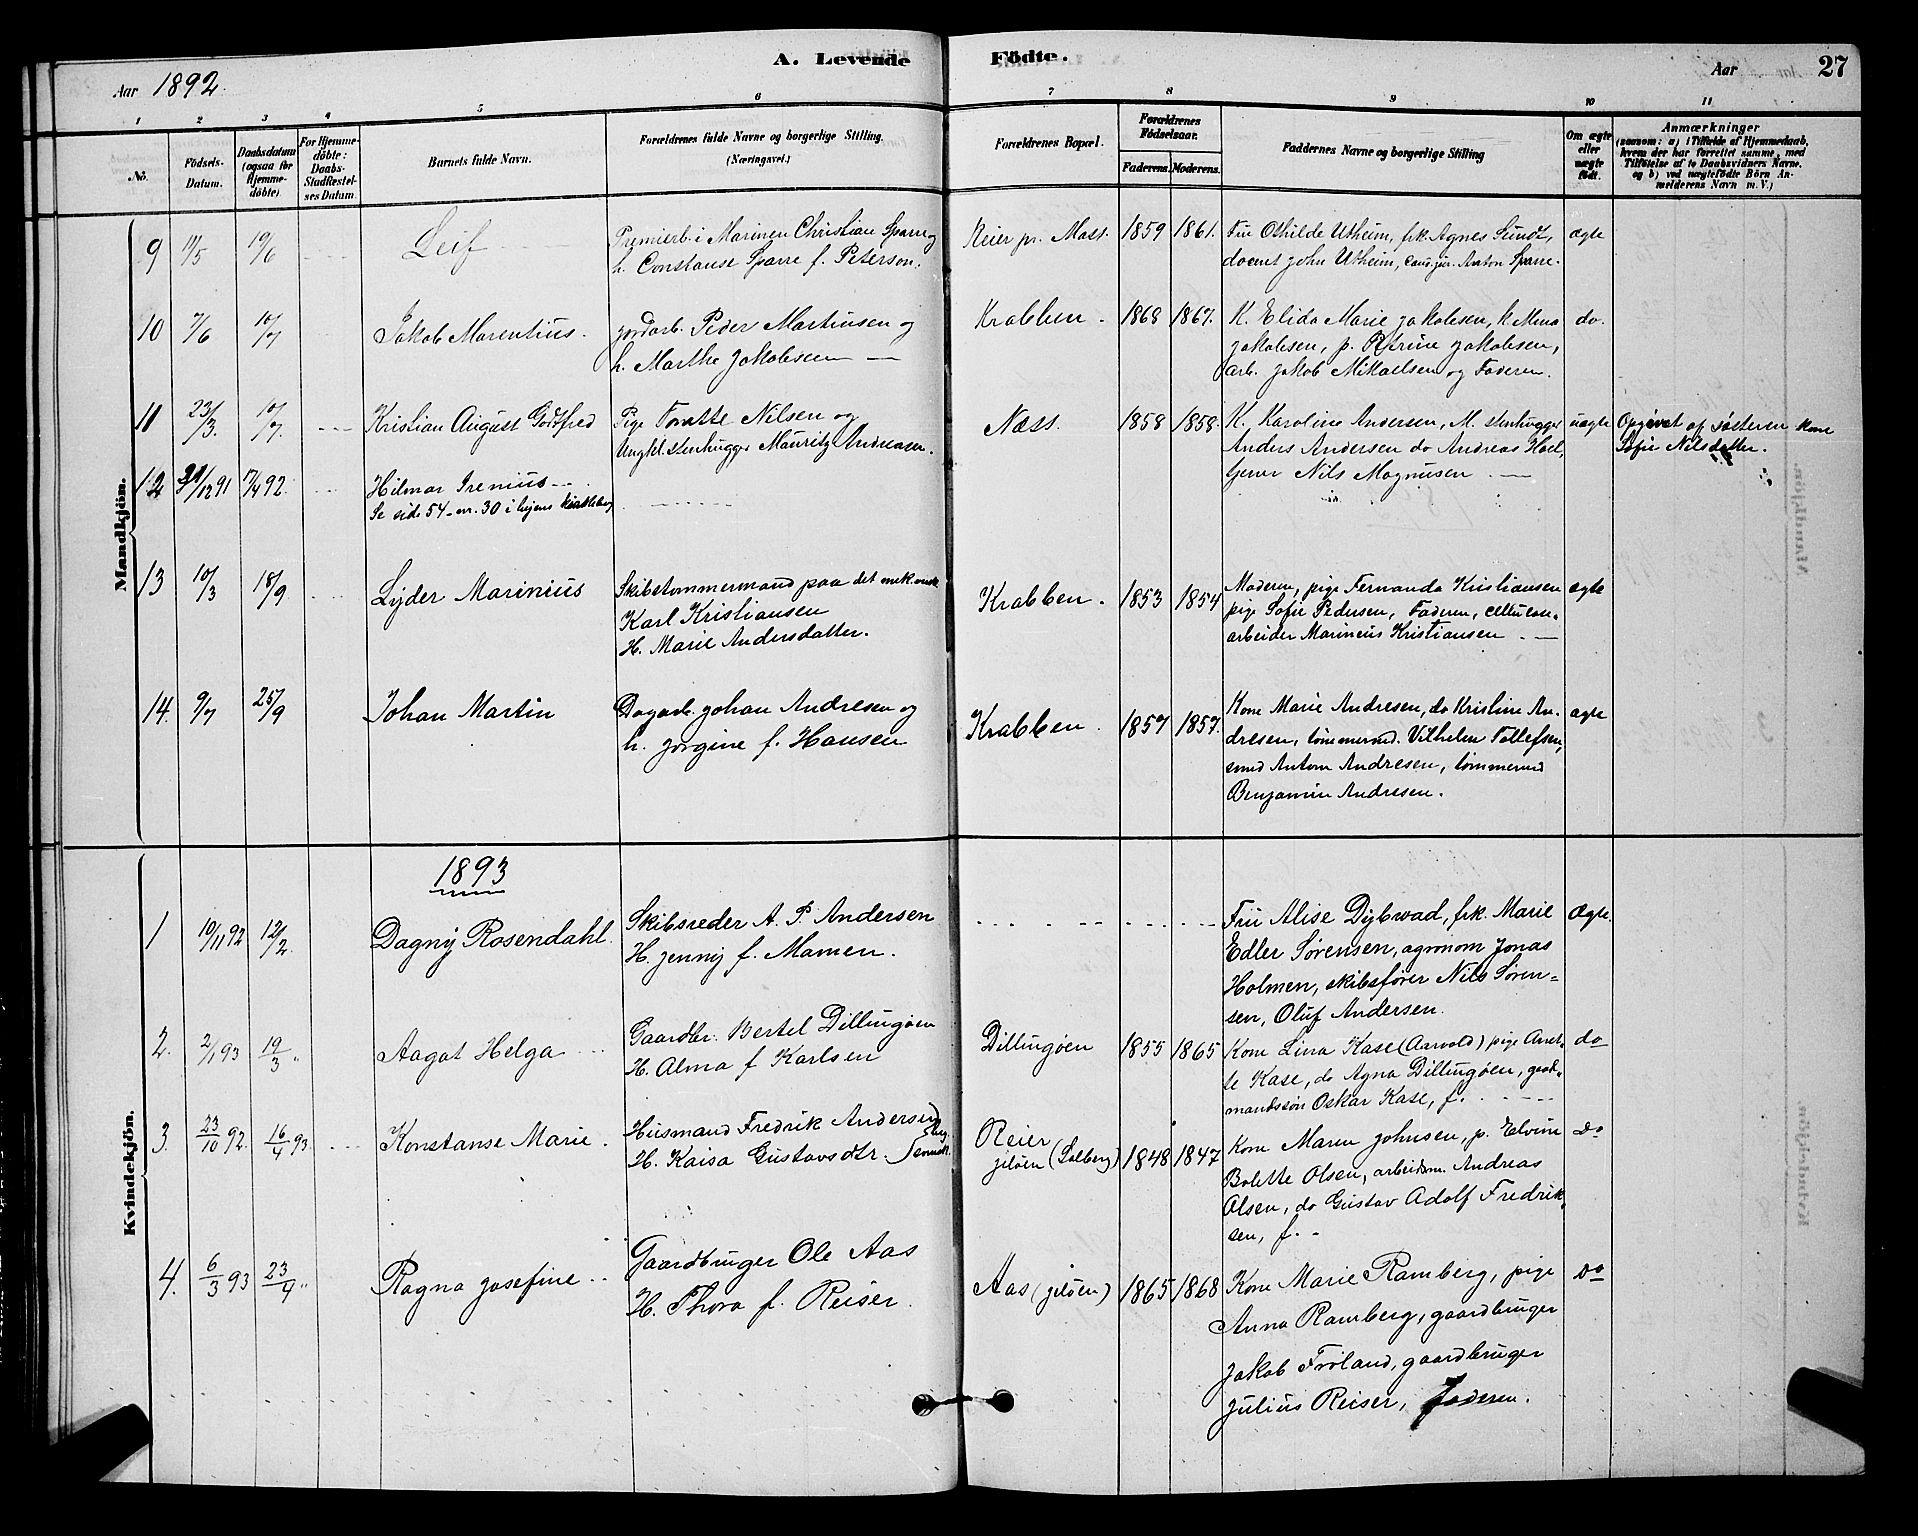 A. Levende Födte.
Aar 1892.
Aar 27
1 2 3 4 5 6 7 8 9 10 11
No.
Födsels-Datum.
Daabsdatum (ogsaa for Hjemme-döbte).
For Hjemme-döbte: Daabs-Stadfæstelses Datum.
Barnets fulde Navn.
Forældrenes fulde Navne og borgerlige Stilling.
(Næringsvei.)
Forældrenes Bopæl.
Forældrenes Födselsaar.
Faderens. Moderens.
Faddernes Navne og borgerlige Stilling
Om ægte eller uægte födt.
Anmærkninger
(saasom: a) i Tilfælde af Hjemmedaab, hvem der har forrettet samme, med Tilföielse af to Daabsvidners Navne, og b) ved uægtefödte Börn Anmelderens Navn m. V.)
Mandkjön.
9 11/5 19/6 Leif
Premierl. i Marinen Christian Sparre og
h. Constanse Sparre f. Peterson.
Reier pr. Moss. 1859 1861.
Fru Othilde Utheim, frk. Agnes Sundt,
docent John Utheim, cand. jur. Anton Sparre.
ægte
10 7/6 10/7 Jakob Marentius.
jordarb. Peder Martinsen og
h. Marthe Jakobsen —
Krabben. 1868 1867.
K. Elida Marie Jakobsen, k. Mina
Jakobsen, p. Petrine Jakobsen,
arb. Jakob Mikaelsen og Faderen.
do.
11 23/3. 10/7. Kristian August Godtfred
Pige Toratte Nilsen og
Ungkl. stenhugger Mauritz Andreasen.
Næss. 1858 1858.
K. Karoline Andersen, M. stenhugger
Anders Andersen do Andreas Hoel,
Gjerner Nils Magnusen —
uægte
Opgivet af søsteren kone
Sofie Nilsdatter.
12 /12 91 17/4 92. Hilmar Irenius
Se side 54 - nr. 30 i byens kirkebog
13 10/3 18/9 Lyder Marinius
Skibstømmermand paa det mek. verk.
Karl Kristiansen
H. Marie Andersdatter.
Krabben. 1853 1854
Moderen, pige Fernanda Kristiansen
pige Sofie Pedersen, Faderen,
arbeider Marineus Kristiansen —
ægte
14. 9/7 25/9 Johan Martin
Dagarb. Johan Andresen og
h. Jørgine f. Hansen
Krabben. 1857 1857.
Kone Marie Andresen, do Kristine An-
dresen, tømmermd. Vilhelm Tollefsen,
smed Anton Andresen, tømmermd
Benjamin Andresen.
ægte
Kvindekjön.
1893
1 10/11 92 12/2 Dagny Rosendahl.
Skibsreder A. P. Andersen
H. Jenny f. Mamen.
Fru Alise Dybwad, frk. Marie
Edler Sørensen, agronom Jonas
Holmen, skibsfører Nils Søren=
sen, Oluf Andersen.
Ægte.
2. 2/1 93 19/3 " Aagot Helga
Gaardbr. Bertel Dillingøen
H. Alma f Karlsen
Dillingøen 1855 1865
Kone Lina Kase (Aarvold) pige Anet-
te Kase, do Agna Dillingøen, gaard-
mandssøn Oskar Kase, f.
do
3. 23/10 92. 16/4 93. Konstanse Marie.
Husmand Fredrik Andersen
H. Kaisa Gustavsdtr.
Reier
Jeløen (Solberg) 1848 1847
Kone Maren Johnsen, p. Elvine
Bolette Olsen, arbeidsm. Andreas
Olsen, do Gustav Adolf Fredrik-
sen, f.
Do
4. 6/3 93 23/4 " Ragna Josefine
Gaardbruger Ole Aas
H. Thora f. Reiser.
Aas (Jeløen) 1865 1868
Kone Marie Ramberg, pige
Anna Ramberg, gaardbruger
Jakob Frøland, gaardbruger
Julius Reiser, Faderen.
Do